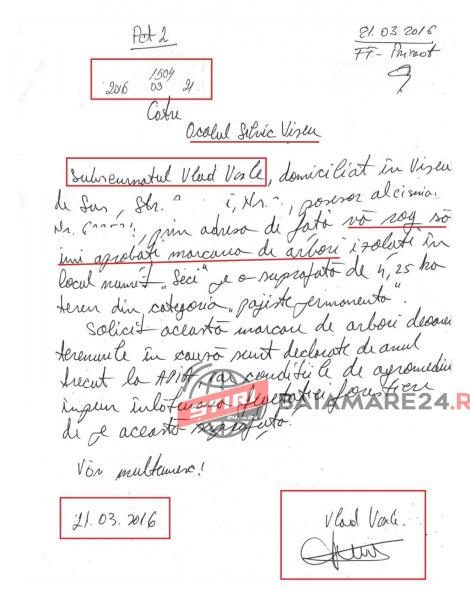 Pct 2
21.03.2016
FF - Primot
1504
2016 03 21
Catre
Ocolul Silvic Viseu
Subsemnatul Vlad Vasile, domiciliat în Viseu
de Sus, Str. , Nr. , posesor al ci seria
Nr. , prin adresa de fata vă rog să
îmi aprobati marcarea de arbori izolati în
locul numit "Seci" pe o suprafată de 4,25 ha
teren din categoria "pajiste permanenta".
Solicit această marcare de arbori deoarece
terenurile în cauză sunt declarate de anul
trecut la APIA iar conditiile de agromediu
impun înlăturarea vegetatiei forestiere
de pe această suprafata.
BAIAMARE24.R
Văn multumesc!
21.03.2016
Vlad Vasile.